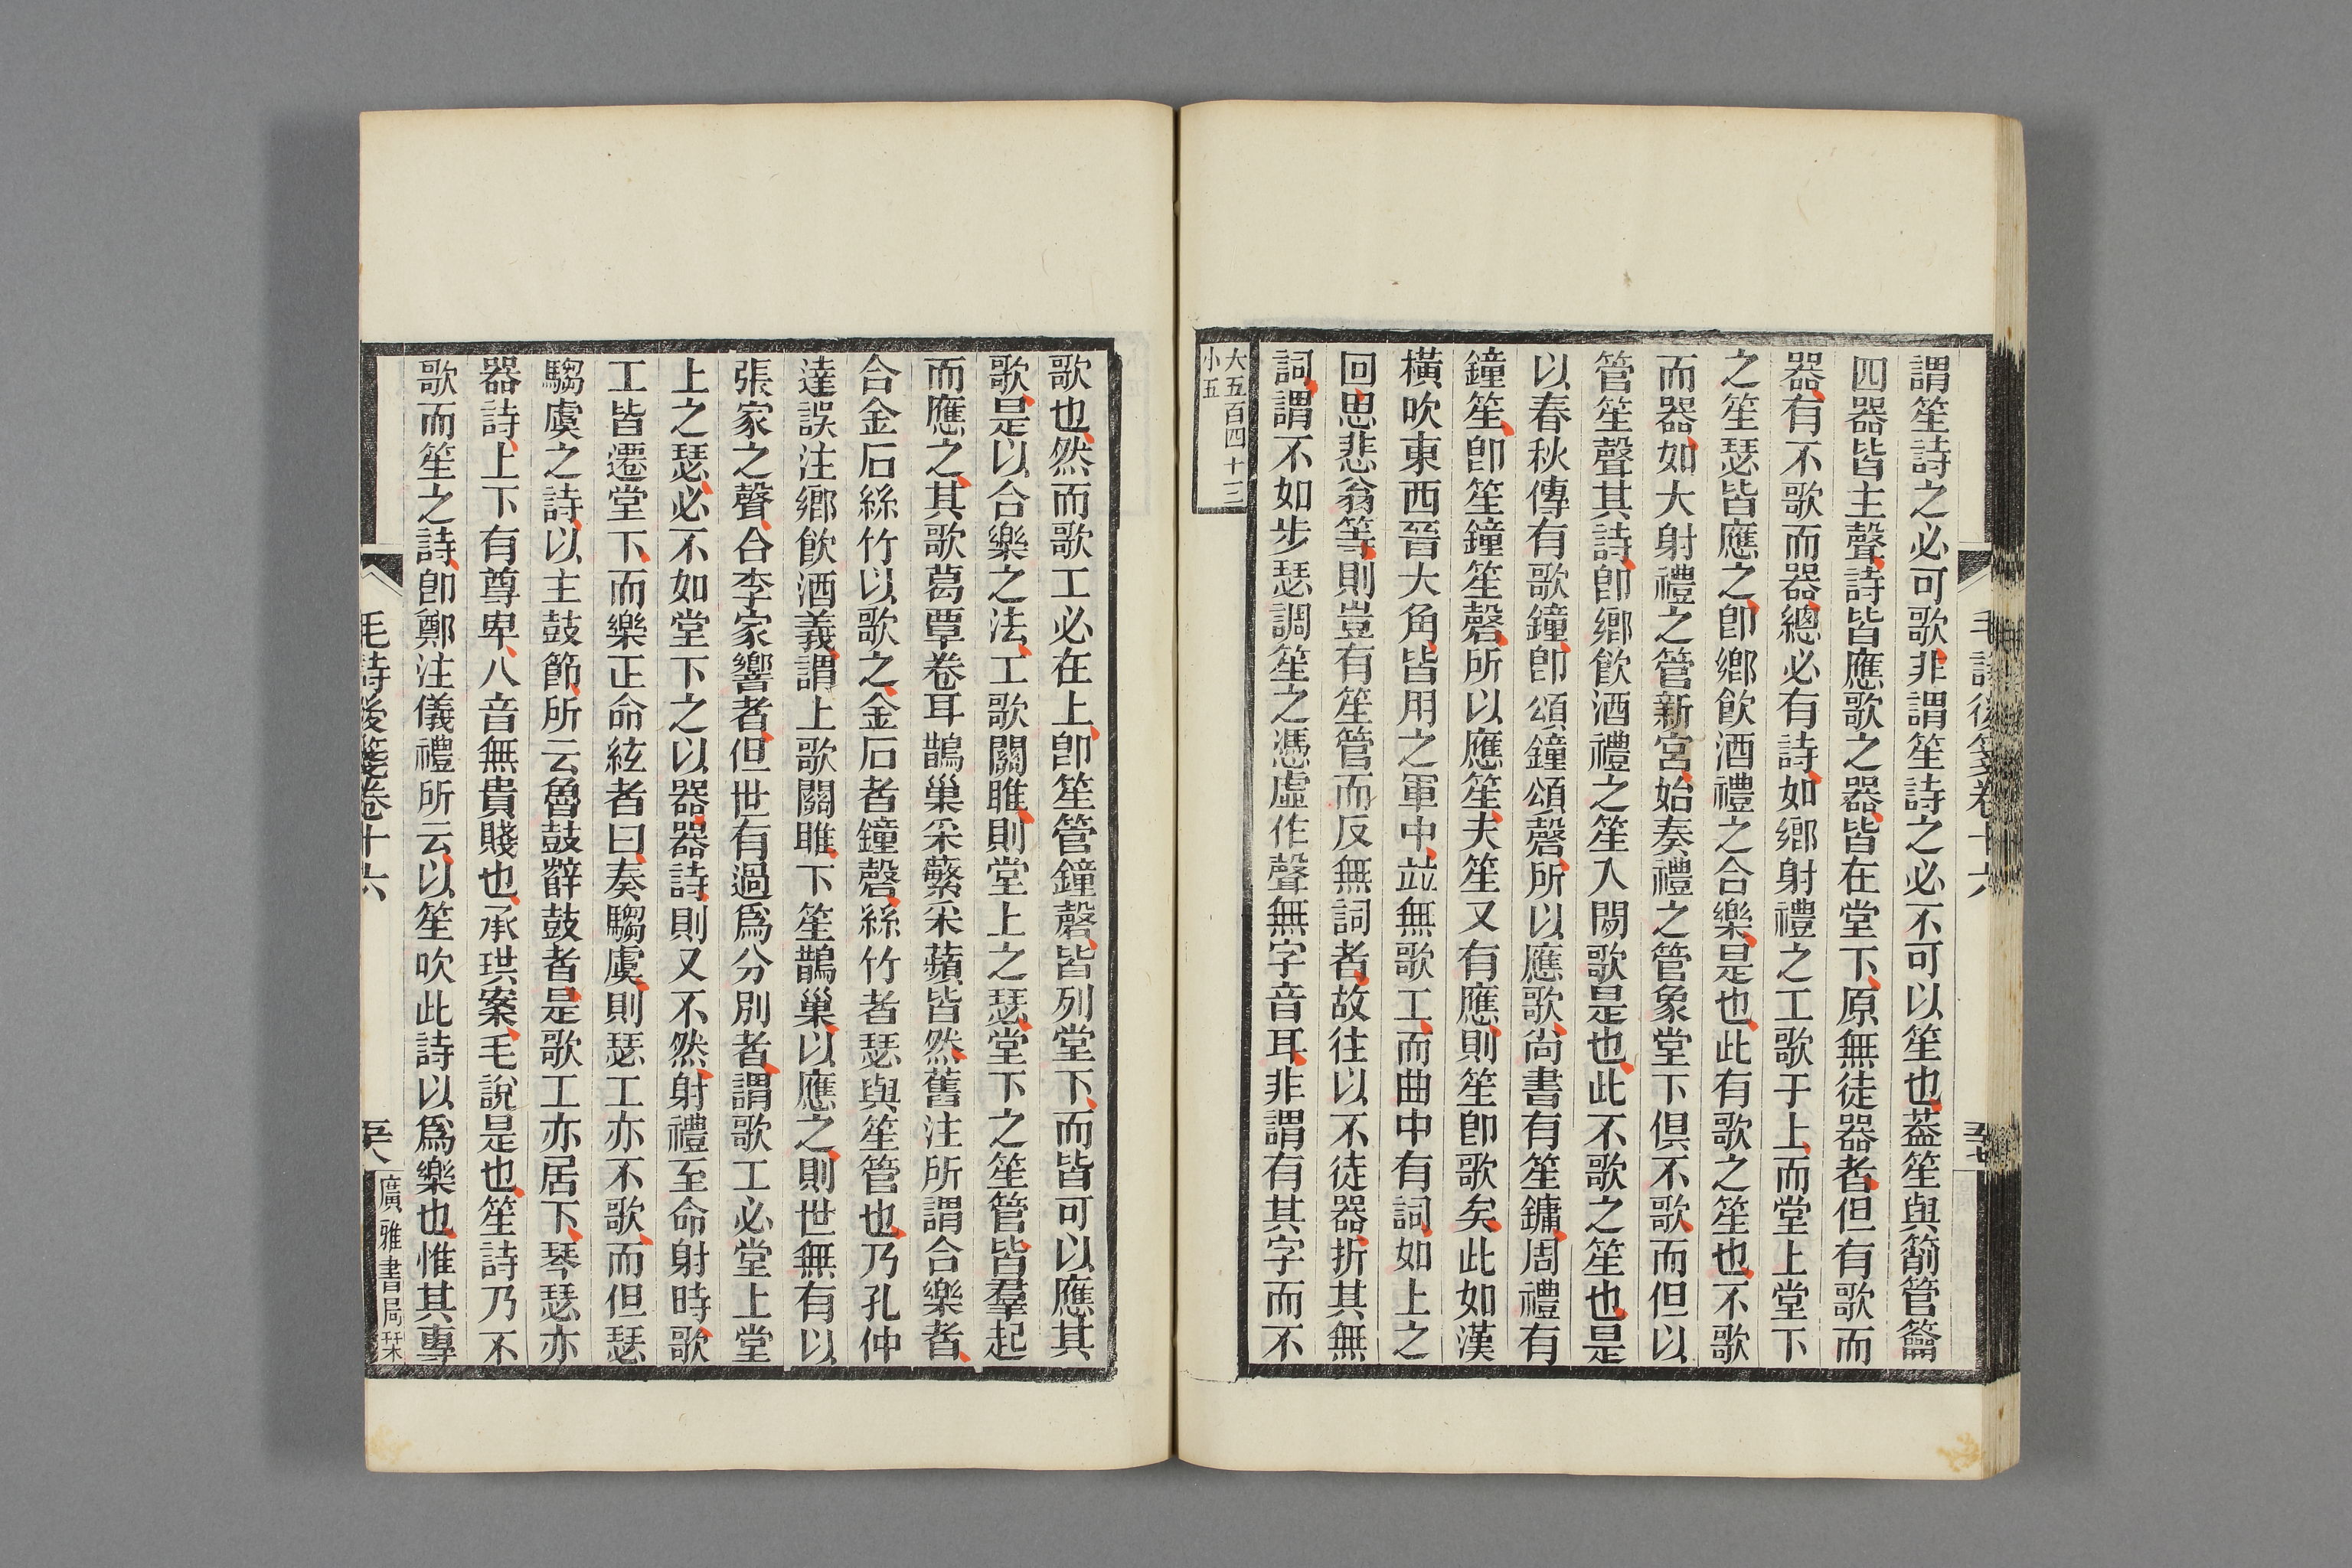 謂笙詩之必可歌非謂笙詩之必不可以笙也葢笙與箾管籥
四器皆主聲詩皆應歌之器皆在堂下原無徒器者但有歌而
器有不歌而器總必有詩如鄉射禮之工歌于上而堂上堂下
之笙瑟皆應之卽鄉飮酒禮之合樂是也此有歌之笙也不歌
而器如大射禮之管新宮始奏禮之管象堂下俱不歌而但以
管笙聲其詩卽鄉飮酒禮之笙入閒歌是也此不歌之笙也是
以春秋傳有歌鐘卽頌鐘頌磬所以應歌尙書有笙鏞周禮有
鐘笙卽笙鐘笙磬所以應笙夫笙又有應則笙卽歌矣此如漢
橫吹東西晉大角皆用之軍中竝無歌工而曲中有詞如上之
回思悲翁等則豈有笙管而反無詞者故往以不徒器折其無
詞謂不如步瑟調笙之憑虛作聲無字音耳非謂有其字而不
大五百四十三
小五
毛詩後箋卷十六
歌也然而歌工必在上卽笙管鐘磬皆列堂下而皆可以應其
歌是以合樂之法工歌關雎則堂上之瑟堂下之笙管皆羣起
而應之其歌葛覃卷耳鵲巢采蘩采蘋皆然舊注所謂合樂者
合金石絲竹以歌之金石者鐘磬絲竹者瑟與笙管也乃孔仲
達誤注鄉飮酒義謂上歌關雎下笙鵲巢以應之則世無有以
張家之聲合李家響者但世有過爲分別者謂歌工必堂上堂
上之瑟必不如堂下之以器器詩則又不然射禮至命射時歌
工皆遷堂下而樂正命絃者曰奏騶虞則瑟工亦不歌而但瑟
騶虞之詩以主鼓節所云魯鼓薛鼓者是歌工亦居下琴瑟亦
器詩上下有尊卑八音無貴賤也承珙案毛說是也笙詩乃不
歌而笙之詩卽鄭注儀禮所云以笙吹此詩以爲樂也惟其專
毛詩後箋卷十六
廣雅書局栞